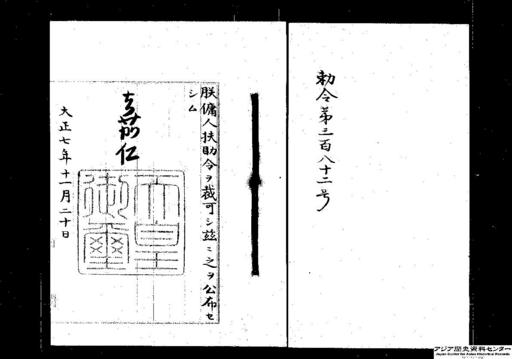 勅令第三百八十二号
朕傭人扶助令ヲ裁可シ茲ニ之ヲ公布セ
シム
嘉仁
天皇御璽
大正七年十一月二十日
アジア歴史資料センター
Japan Center for Asian Historical Records